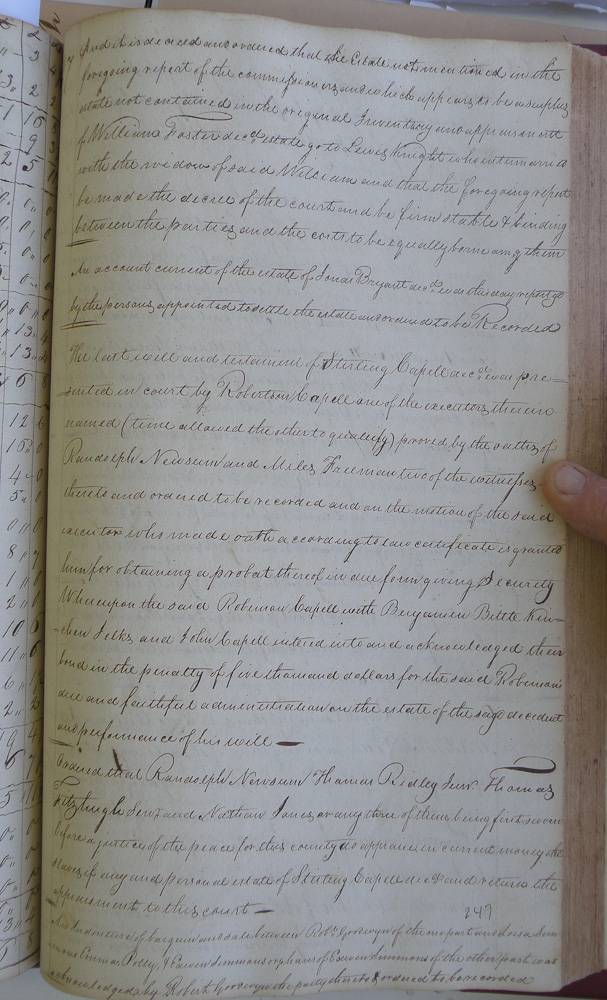 And it is decreed and ordered that the Estate not mentioned in the
foregoing report of the commissioners, and which appears to be a surplus
estate not contained in the original Inventory and appraisment
of William Foster decd. estate go to Lewis Knight who intermarried
with the widow of said William and that the foregoing report
be made the decree of the court and be firm stable & binding
between the parties, and the costs to be equally borne amg them
An account current of the estate of Jonas Bryant decd. was this day reported
by the persons appointed to settle the estate and ordered to be Recorded
The last will and testament of Sterling Capell decd. was pre=
=sented in court by Robertson Capell one of the executors, therein
named (time allowed the other to qualify) proved by the oaths, of
Randolph Newsum and Miles, Freeman two of the witnesses,
thereto and ordered to be recorded and on the motion of the said
executor who made oath according to law certificate is granted
him for obtaining a probat thereof in due form giving Security
Whereupon the said Robinson Capell with Benjamin Bittle Kin=
=chen Jelks, and John Capell entered into and acknowledged their
bond in the penalty of five thousand dollars for the said Robinson's
due and faithful administration on the estate of the sagd decedent
and performance of his will —
Ordered that Randolph Newsum Thomas Ridley Junr. Thomas,
Fitzhugh Senr. and Nathan Jones, or any three of them being first sworn
before a justice of the peace for this county do appraise in current money the
slaves, if any and personal estate of Sterling Capell decd and return the
appraisment to this court —
247
An Indenture of bargain and sale between Robt. Goodwyn of the one part and
Emma Polly, & Edwin Simmons orphans of Edwin Simmons of the other part was
acknowledged by Robert Goodwyn the party thereto & ordered to be recorded